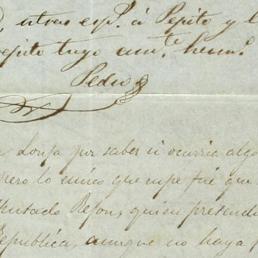 otras esp. á Pepito y l
repito tuyo am.º herm.º
Pedro
Lonja por saber si ocurria algo
pero lo único que supe fué que
Diputado Refon, quien presendi
República, aunque no haya